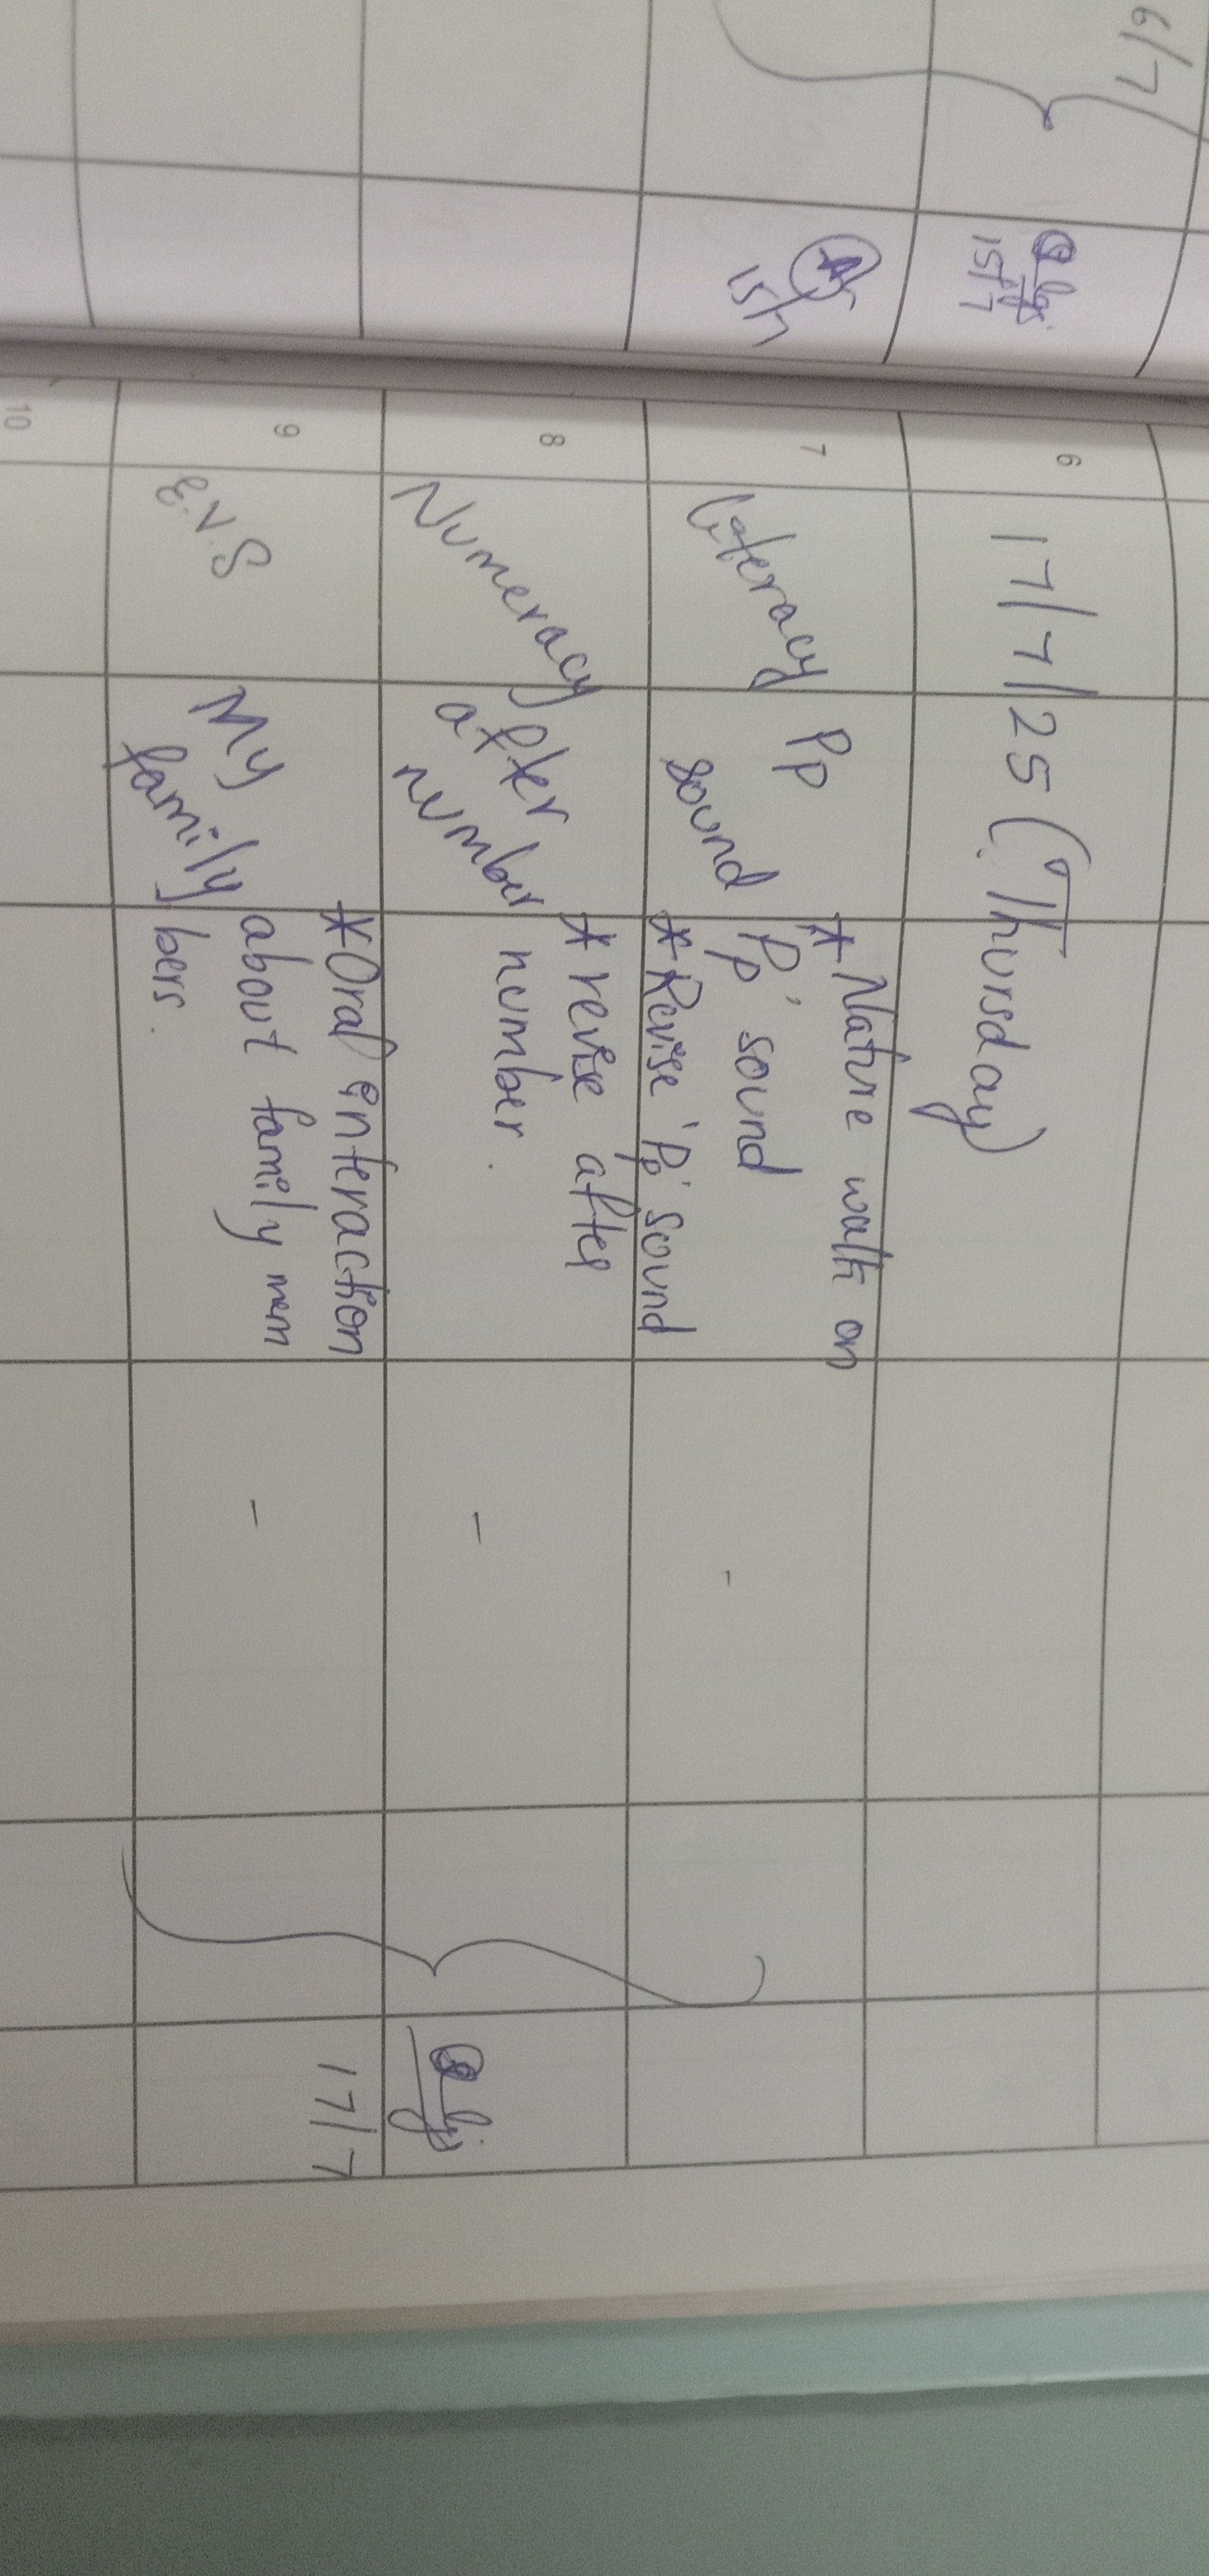 6/7/
15/7
15/7
6
17/7/25 (Thursday)
7
Literacy
Pp
sound
* Nature walk on
'Pp' sound
* Revise 'Pp' sound
-
8
Numeracy
after
number
* revise after
number.
-
9
E.V.S
My
family
* Oral interaction
about family mem
bers.
-
17/7
10